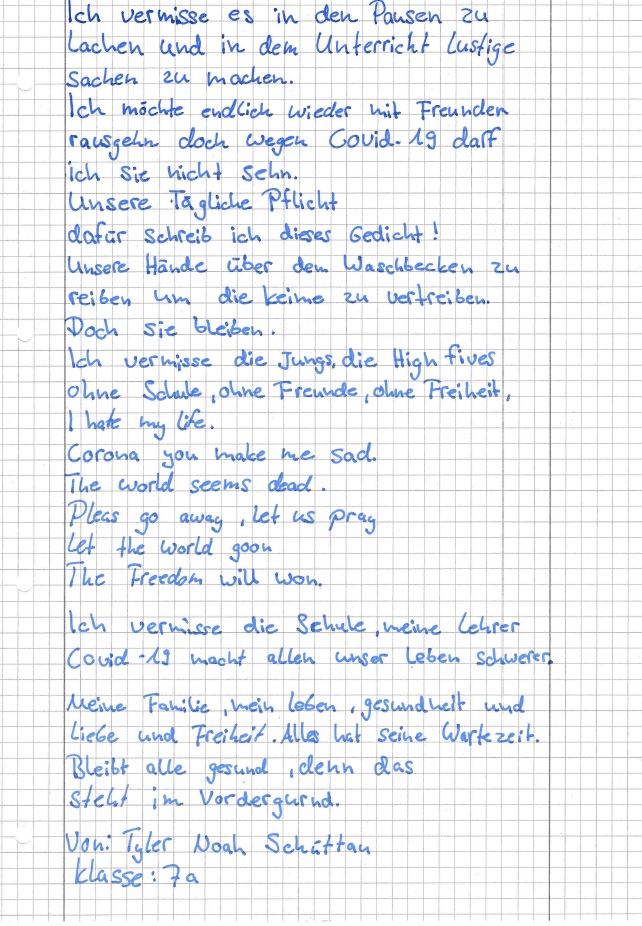 Ich vermisse es in den Pausen zu
Lachen und in dem Unterricht lustige
Sachen zu machen.
Ich möchte endlich wieder mit Freunden
rausgehn doch wegen Covid-19 darf
ich sie nicht sehn.
Unsere Tägliche Pflicht
dafür schreib ich dieses Gedicht!
Unsere Hände über dem Waschbecken zu
reiben um die keime zu vertreiben.
Doch sie bleiben.
Ich vermisse die Jungs, die High fives
ohne Schule, ohne Freunde, ohne Freiheit,
I hate my life.
Corona you make me sad.
The world seems dead.
Pleas go away, let us pray
Let the world goon
The Freedom will won.
Ich vermisse die Schule, meine Lehrer
Covid-19 macht allen unser Leben schwerer.
Meine Familie, mein leben, gesundheit und
Liebe und Freiheit. Alles hat seine Wartezeit.
Bleibt alle gesund, denn das
steht im Vordergurnd.
Von: Tyler Noah Schüttau
Klasse: 7a